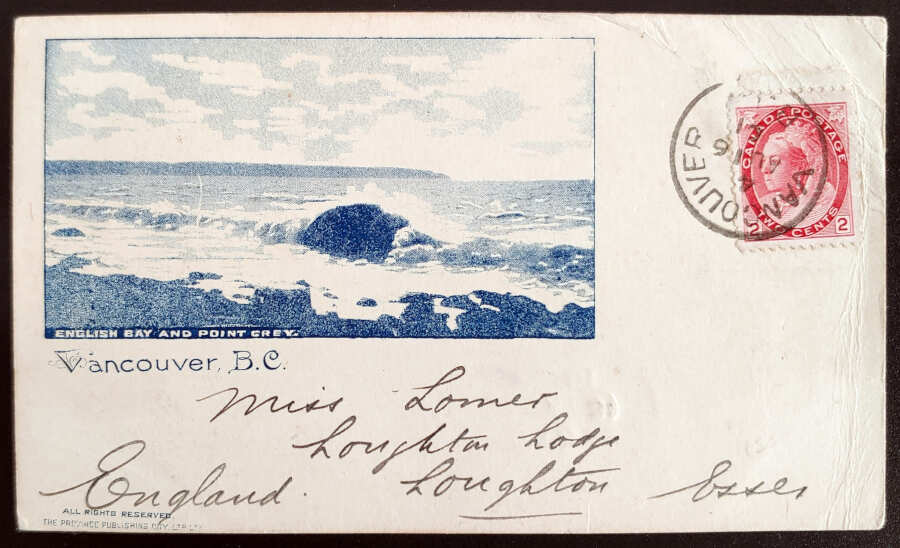 ENGLISH BAY AND POINT GREY.
Vancouver, B.C.
CANADA POSTAGE
TWO CENTS
2 2
VANCOUVER
Miss Lomer
Loughton Lodge
Loughton Essex
England.
ALL RIGHTS RESERVED.
THE PROVINCE PUBLISHING COY. LTD. LTY